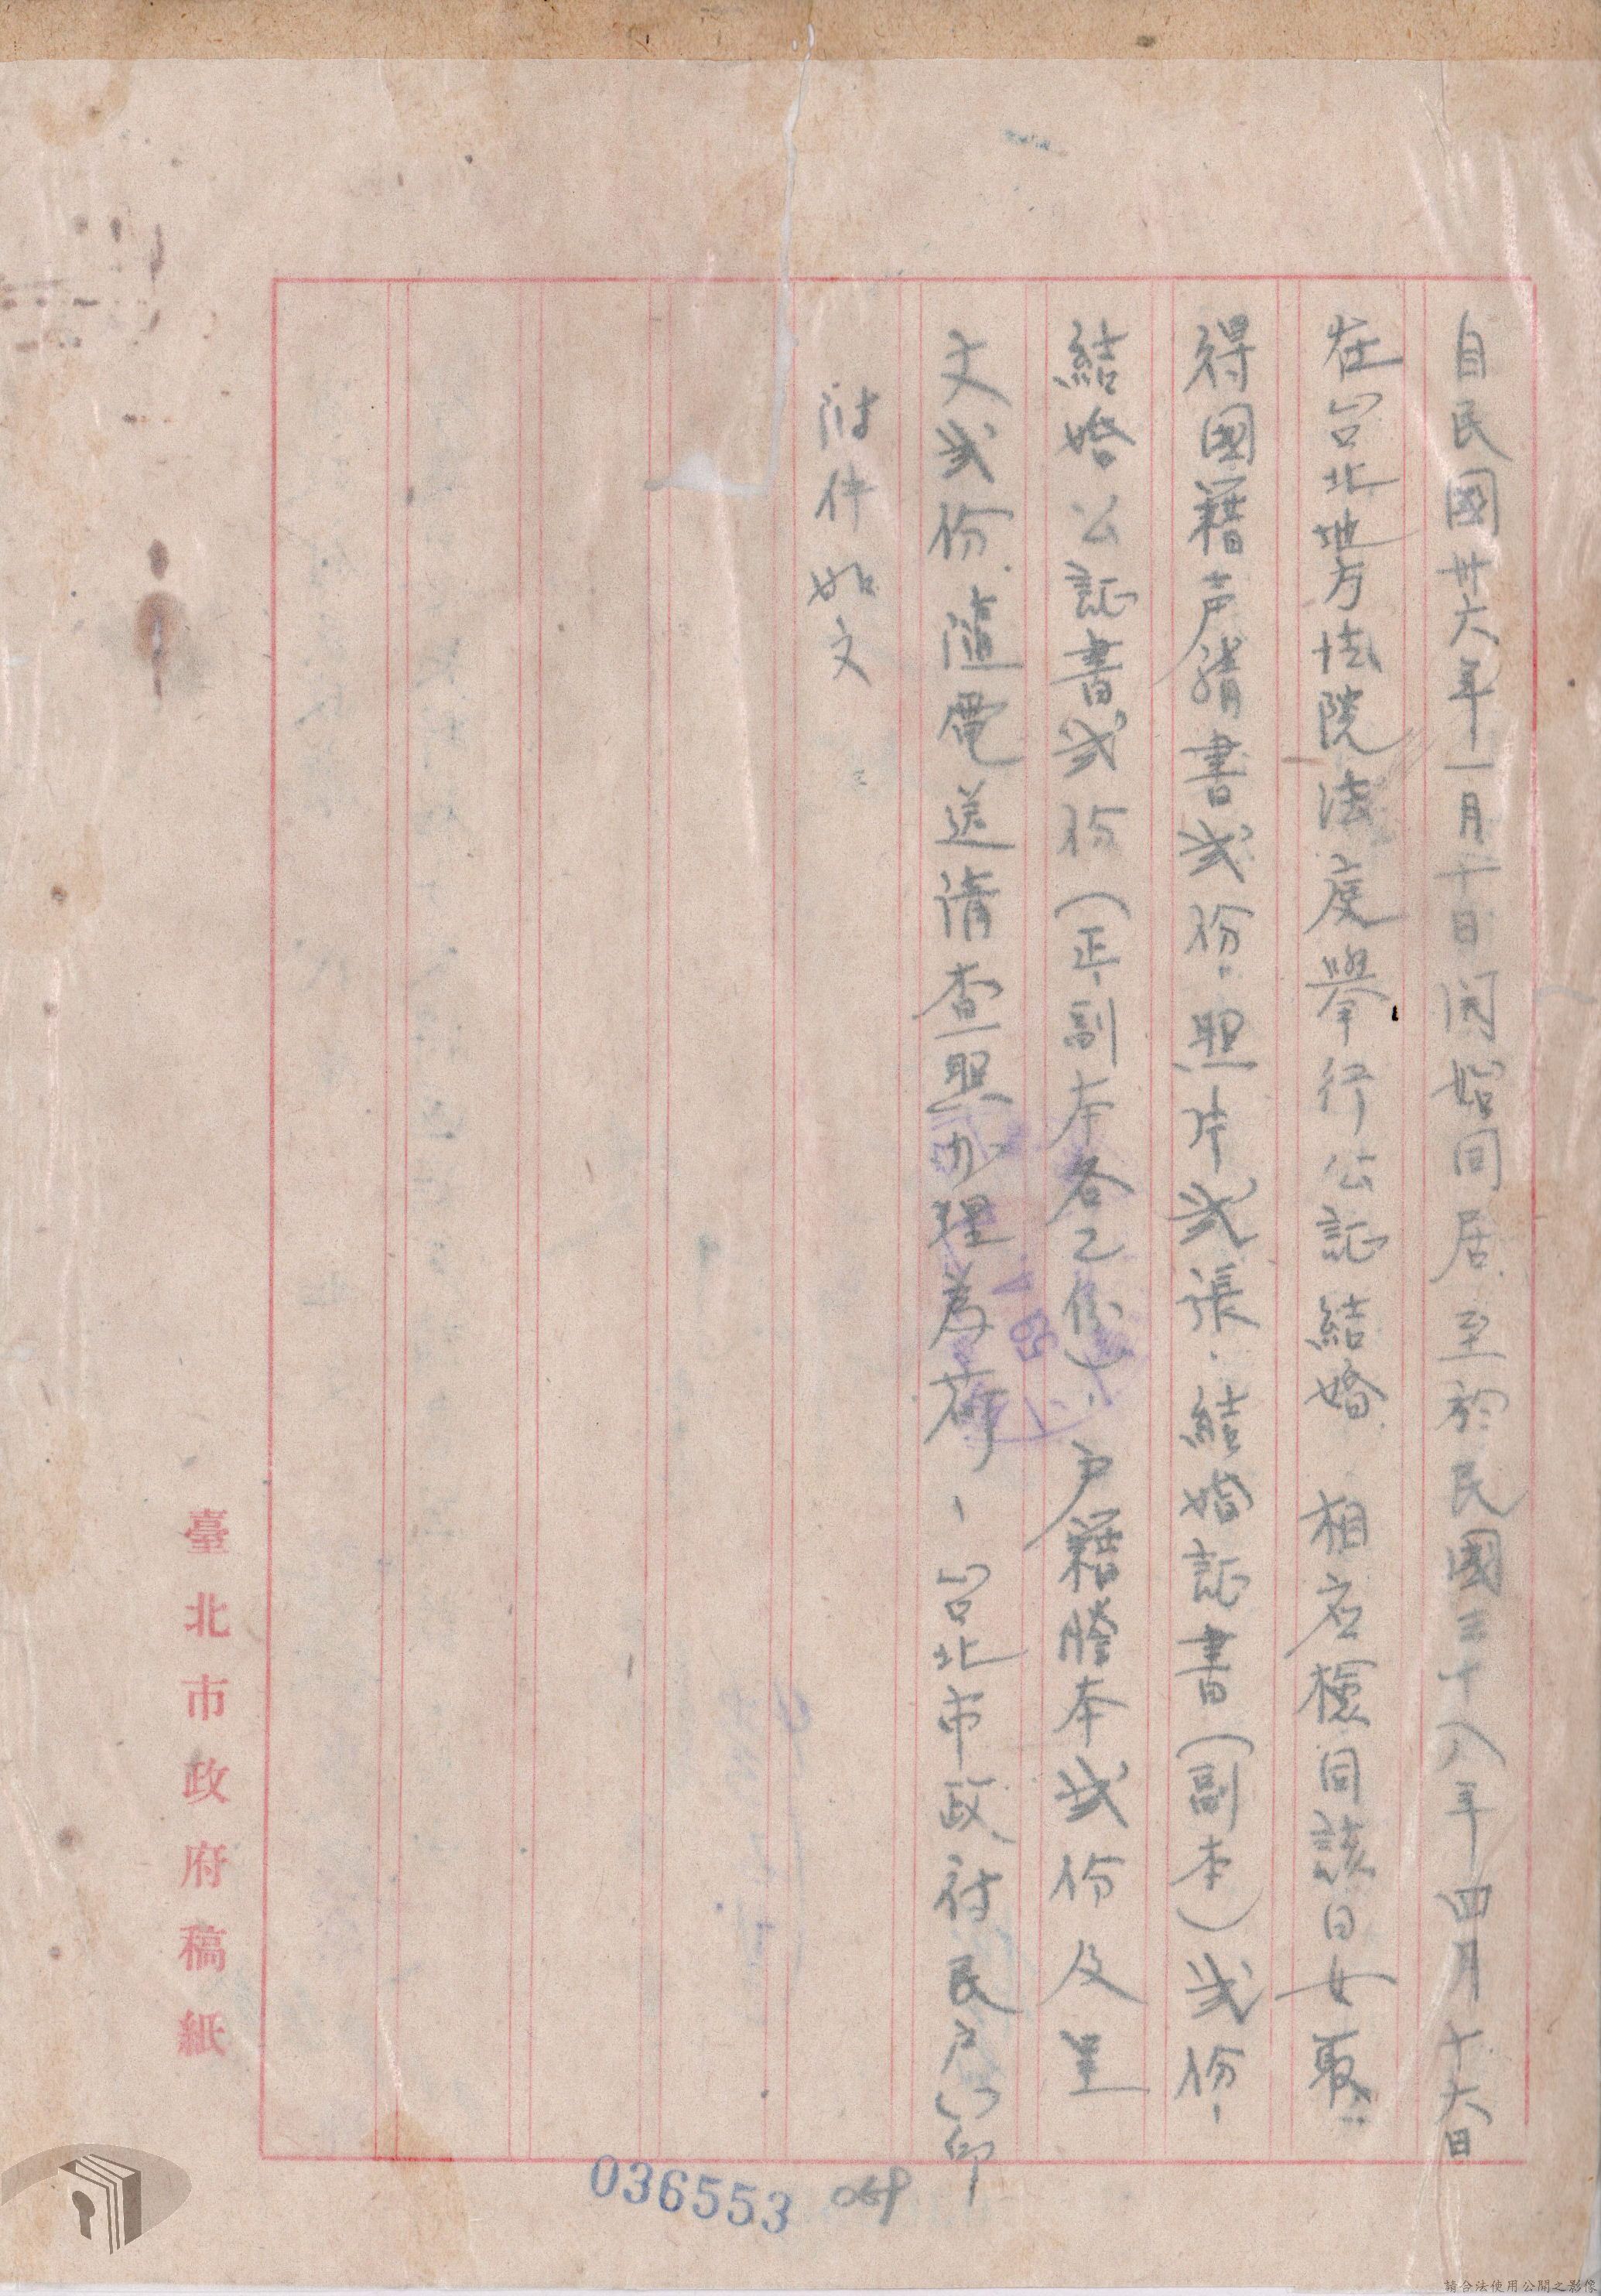 自民國卅六年一月十日開始同居至於民國三十八年四月十六日
在台北地方法院法庭舉行公証結婚 相应檢同該日女取
得國籍声請書弍份.照片弍張.結婚証書(副本)弍份.
結婚公証書弍份(正.副本各乙份).戶籍謄本弍份及呈
文弍份.隨電送請查照办理為荷、台北市政府民戶
附件如文
臺北市政府稿紙
036553
069
請合法使用公開之影像